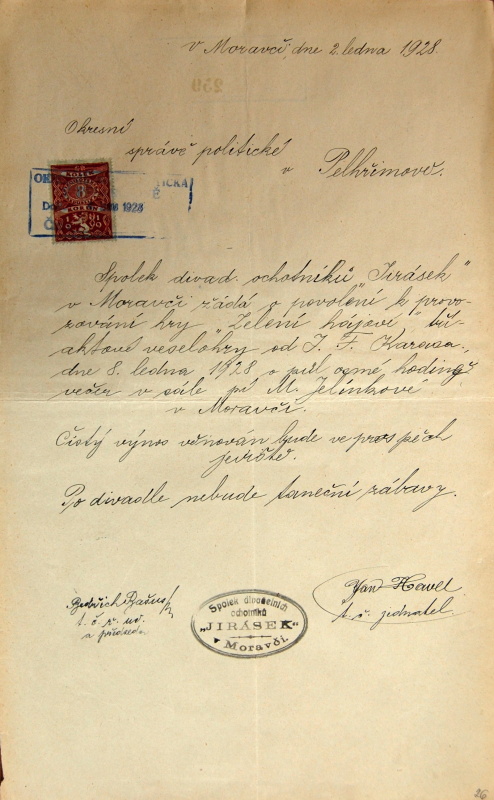 v Moravči, dne 2. ledna 1928.
259
Okresní
správě politické
v Pelhřimově.
KOLEK
8
KORUN
1928
Spolek divad. ochotníků „Jirásek"
v Moravči žádá o povolení k provo-
zování hry „Zelení hájové", tří-
aktové veselohry od J. F. Karasa,
dne 8. ledna 1928 o půl osmé hodině
večer v sále pí M. Jelínkové
v Moravči.
Čistý výnos věnován bude ve prospěch
jeviště.
Po divadle nebude taneční zábavy.
Bedřich
t. č.
a předseda
Spolek divadelních
ochotníků
„JIRÁSEK"
Moravči.
Jan Havel
t. č. jednatel.
26